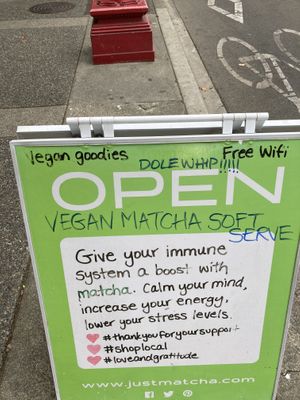 Vegan goodies
Free Wifi
DOLEWHIP!!!!!
OPEN
VEGAN MATCHA SOFT
SERVE
Give your immune
system a boost with
matcha. Calm your mind,
increase your energy,
lower your stress levels.
#thankyouforyoursupport
#shoplocal
#loveandgratitude
www.justmatcha.com